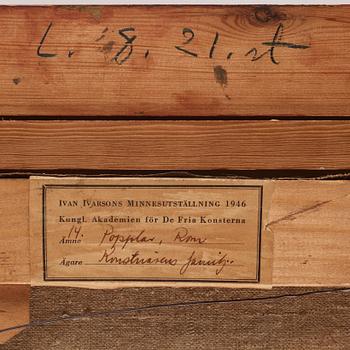 L. 8. 21. st
IVAN IVARSONS MINNESUTSTÄLLNING 1946
Kungl. Akademien för De Fria Konsterna
14.
Ämne Popplar, Rom
Ägare Konstnärens familj.